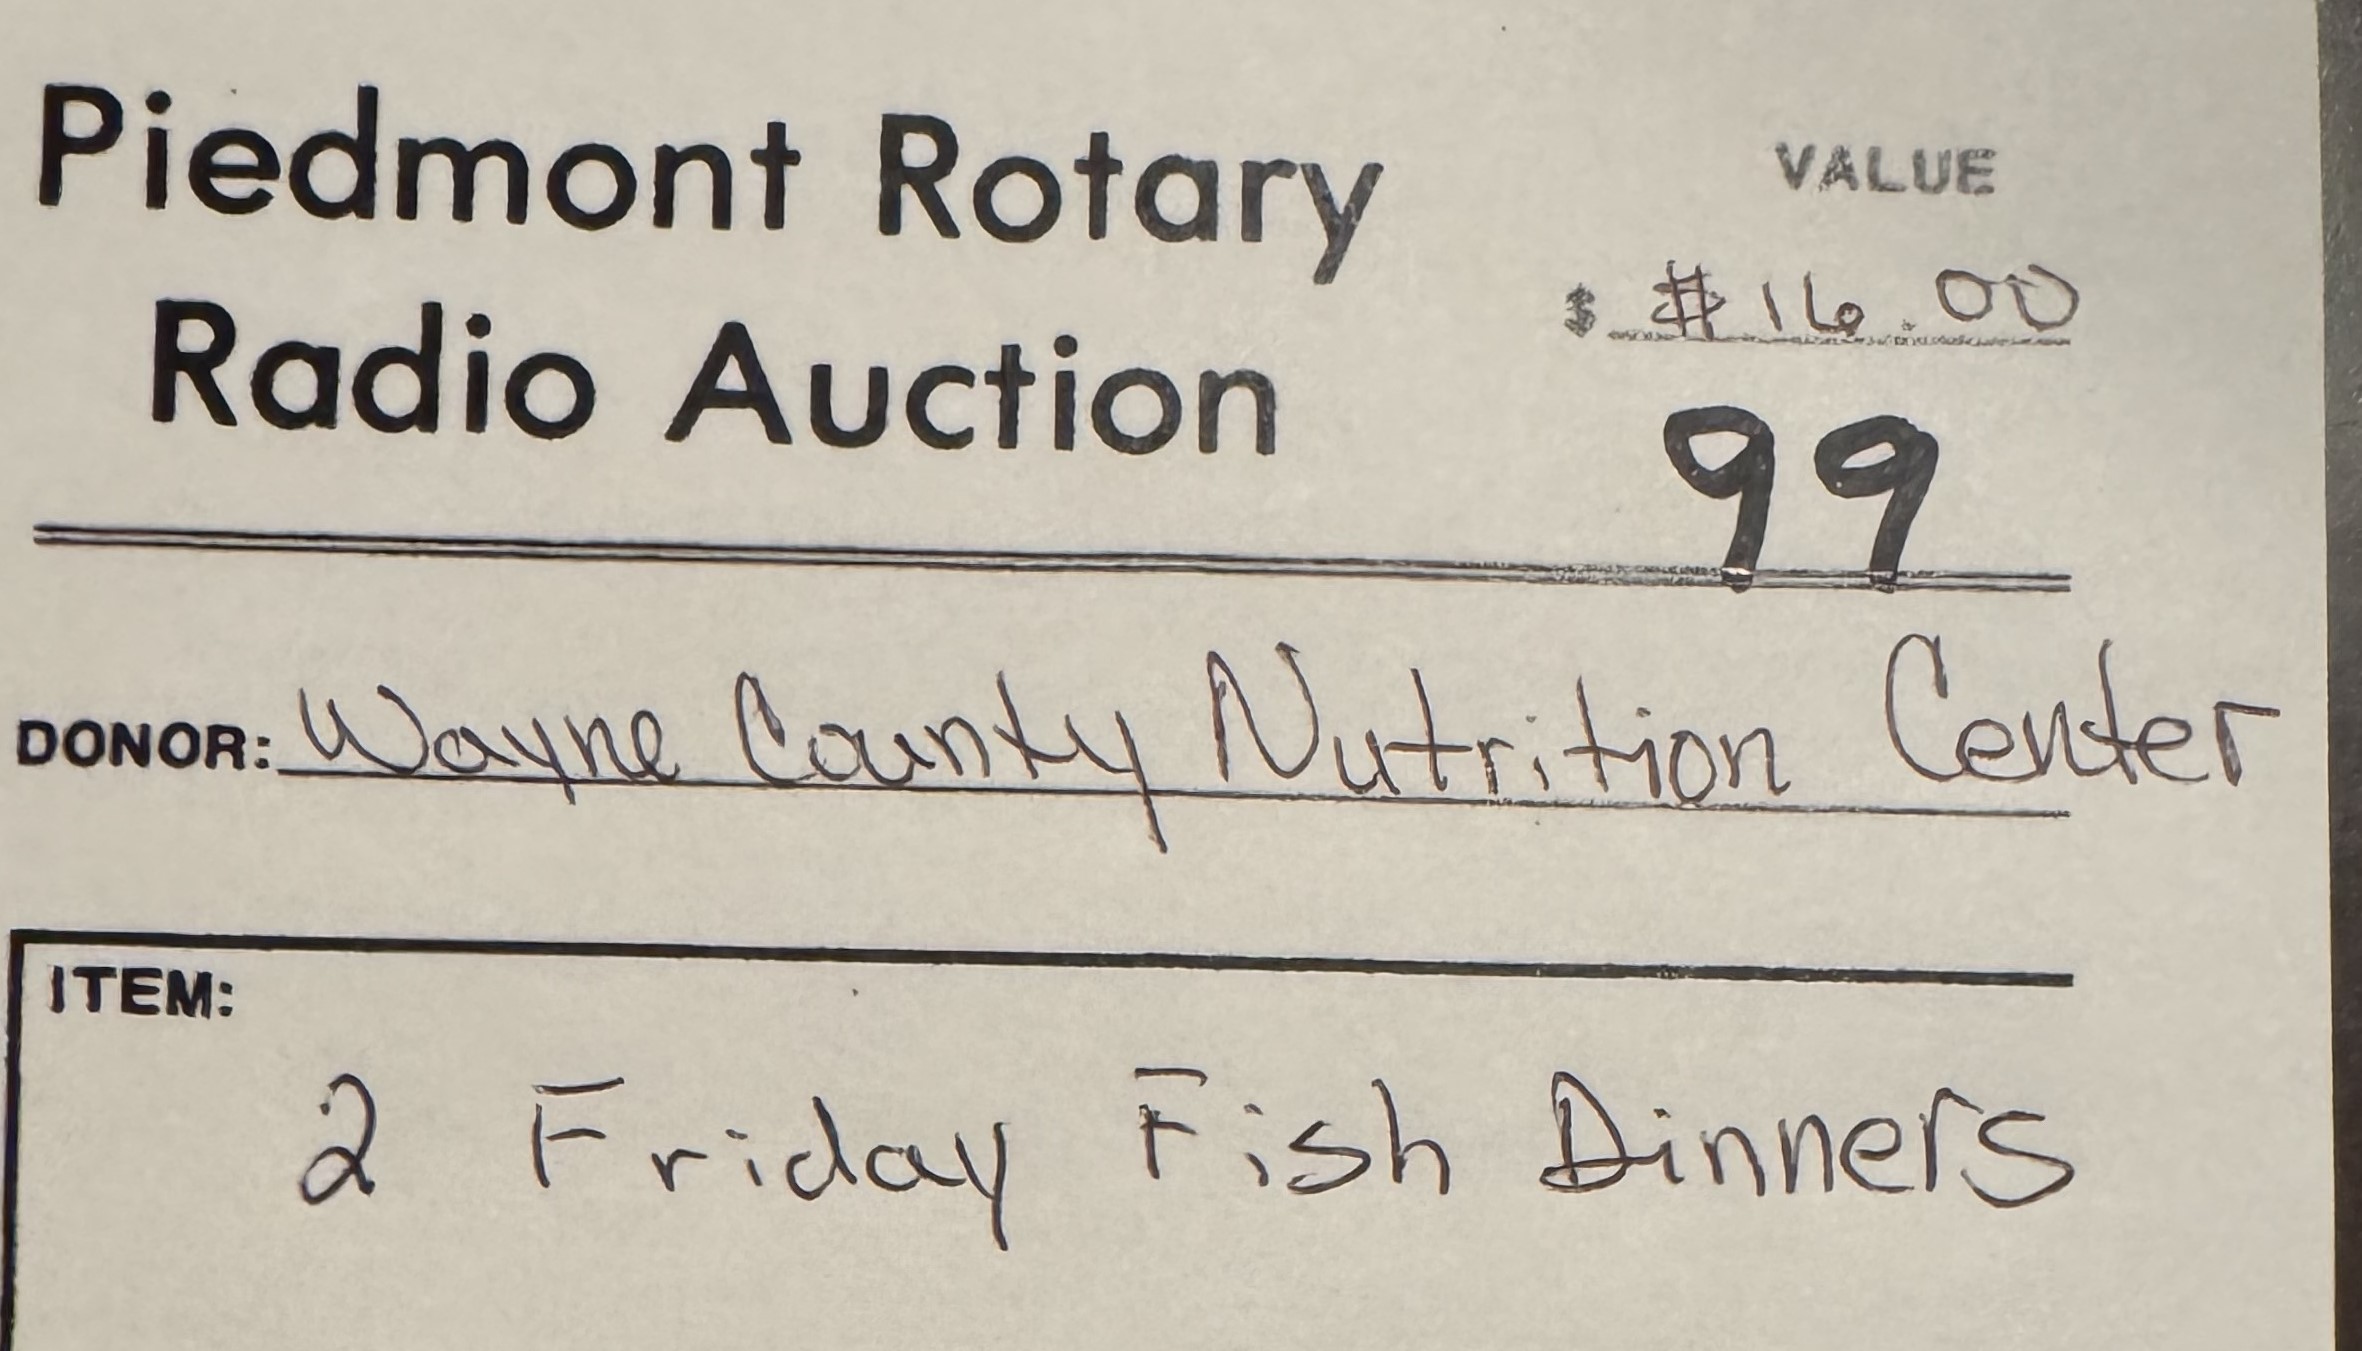 Piedmont Rotary
Radio Auction
VALUE
$ $16.00
99
DONOR: Wayne County Nutrition Center
ITEM:
2 Friday Fish Dinners